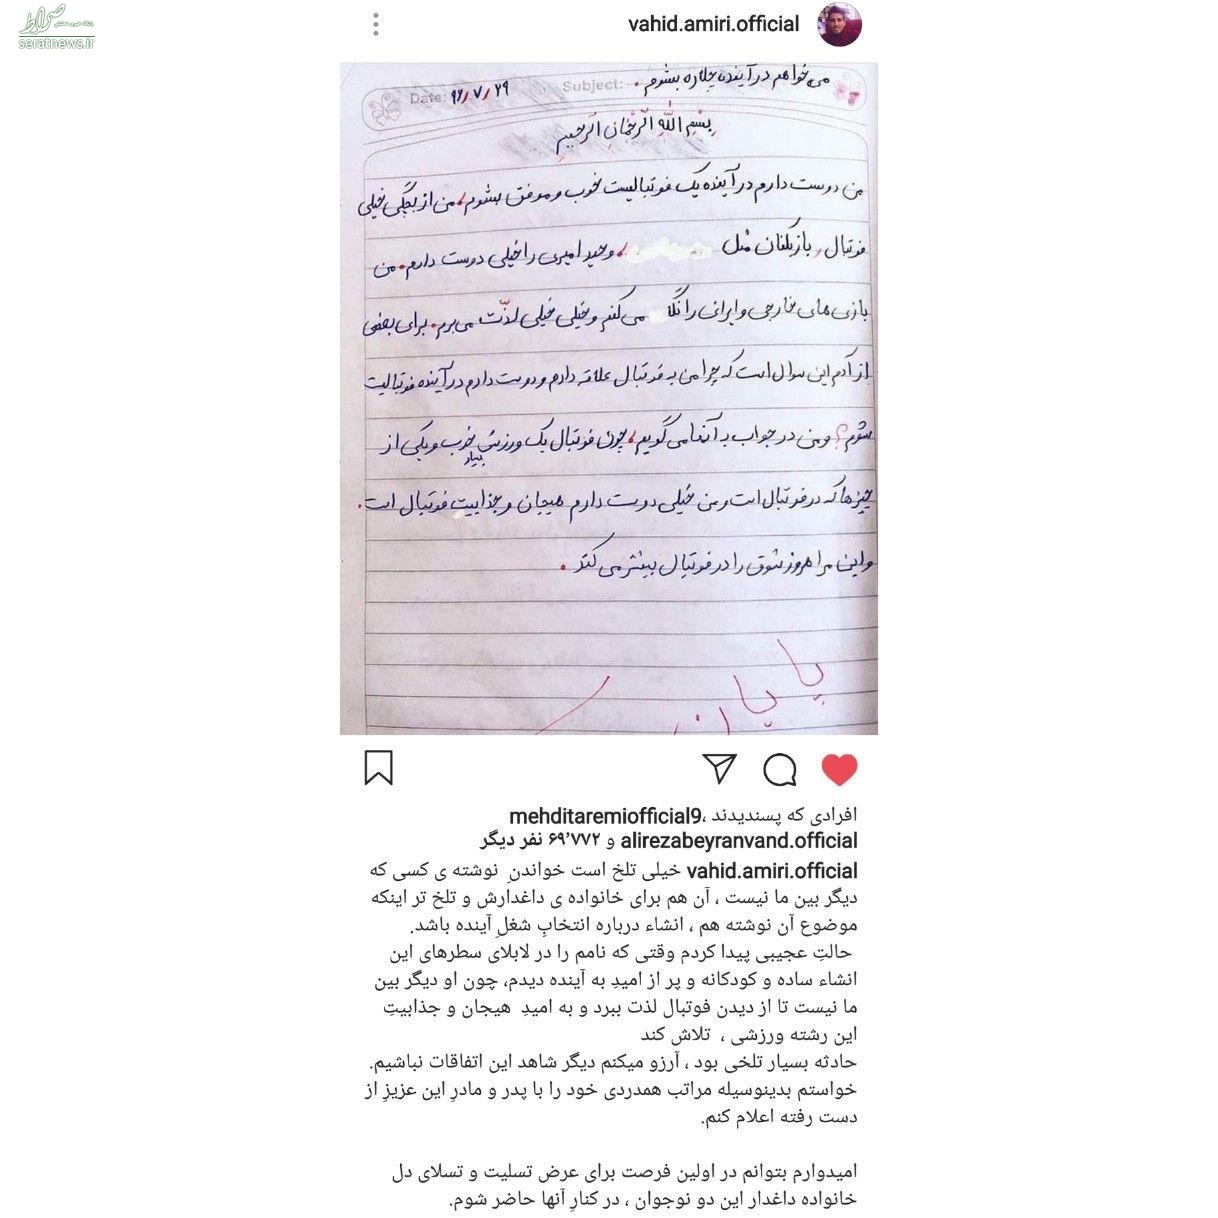 صراط
seratnews.ir
vahid.amiri.official
می خواهم در آینده چکاره بشوم.
Subject:
Date: ۹۶/۷/۲۹
بِسْمِ اللهِ الرَّحْمانِ الرَّحیمِ
من دوست دارم در آینده یک فوتبالیست خوب و موفق بشوم، من از بچگی خیلی
فوتبال، بازیکنان مثل ، وحید امیری را خیلی دوست دارم. من
بازی های خارجی و ایرانی را نگا می کنم و خیلی خیلی لذّت می برم. برای بعضی
از آدم این سوال است که چرا من به فوتبال علاقه دارم و دوست دارم در آینده فوتبالیت
بشوم؟ و من در جواب به آنها می گویم، چون فوتبال یک ورزش بسیار خوب و یکی از
چیزها که در فوتبال است و من خیلی دوست دارم هیجان و جذابیت فوتبال است.
و این مرا هروز شوق را در فوتبال بیشتر می کند.
پایان
افرادی که پسندیدند ،mehditaremiofficial9
alirezabeyranvand.official و ۶۹٬۷۷۲ نفر دیگر
vahid.amiri.official خیلی تلخ است خواندنِ نوشته ی کسی که
دیگر بین ما نیست ، آن هم برای خانواده ی داغدارش و تلخ تر اینکه
موضوع آن نوشته هم ، انشاء درباره انتخابِ شغلِ آینده باشد.
حالتِ عجیبی پیدا کردم وقتی که نامم را در لابلای سطرهای این
انشاء ساده و کودکانه و پر از امیدِ به آینده دیدم، چون او دیگر بین
ما نیست تا از دیدن فوتبال لذت ببرد و به امیدِ هیجان و جذابیتِ
این رشته ورزشی ، تلاش کند
حادثه بسیار تلخی بود ، آرزو میکنم دیگر شاهد این اتفاقات نباشیم.
خواستم بدینوسیله مراتب همدردی خود را با پدر و مادرِ این عزیزِ از
دست رفته اعلام کنم.
امیدوارم بتوانم در اولین فرصت برای عرض تسلیت و تسلای دل
خانواده داغدار این دو نوجوان ، در کنارِ آنها حاضر شوم.